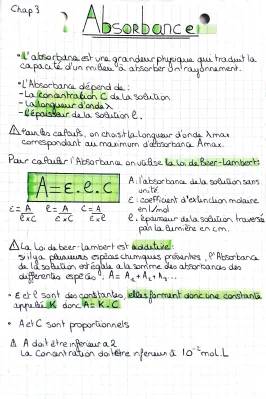 Chap 3
Absorbance
• L'absorbance est une grandeur physique qui traduit la
capacité d'un milieu à absorber 1 rayonnement.
• L'Absorbance dépend de :
- La concentration C de la solution
- La longueur d'onde λ
- L'épaisseur de la solution l.
⚠ Pour les calculs, on choisit la longueur d'onde λmax
correspondant au maximum d'absorbance Amax.
Pour calculer l'Absorbance on utilise la loi de Beer-Lambert:
A = ε.l.C
A: l'absorbance de la solution sans
unité
ε: coefficient d'extinction molaire
en l/mol
l: épaisseur de la solution traversée
par la lumière en cm.
ε = A/l×C l = A/ε×C C = A/ε×l
⚠ La Loi de beer-lambert est additive :
si il y a plusieurs espèces chimiques présentes, l'Absorbance
de la solution est égale à la somme des absorbances des
différentes espèces. A = A₁ + A₂ + A₃...
• ε et l sont des constantes, elles forment donc une constante
appelée K donc A = K.C
• A et C sont proportionnels
⚠ A doit être inférieur à 2
La concentration doit être inférieur à 10⁻² mol.L